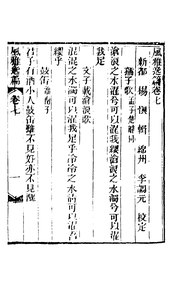 風雅逸篇卷七
新都 楊慎 輯 綿州 李調元 校定
孺子歌 孟子楚辭同
滄浪之水清兮可以濯我纓滄浪之水濁兮可以濯
我足
文子載滄浪歌
混混之水濁可以濯我足乎泠泠之水清可以濯我
纓乎
鼓缶 淮南子
君子有酒小人鼓缶雖不見好亦不見醜
風雅逸篇 卷七 一